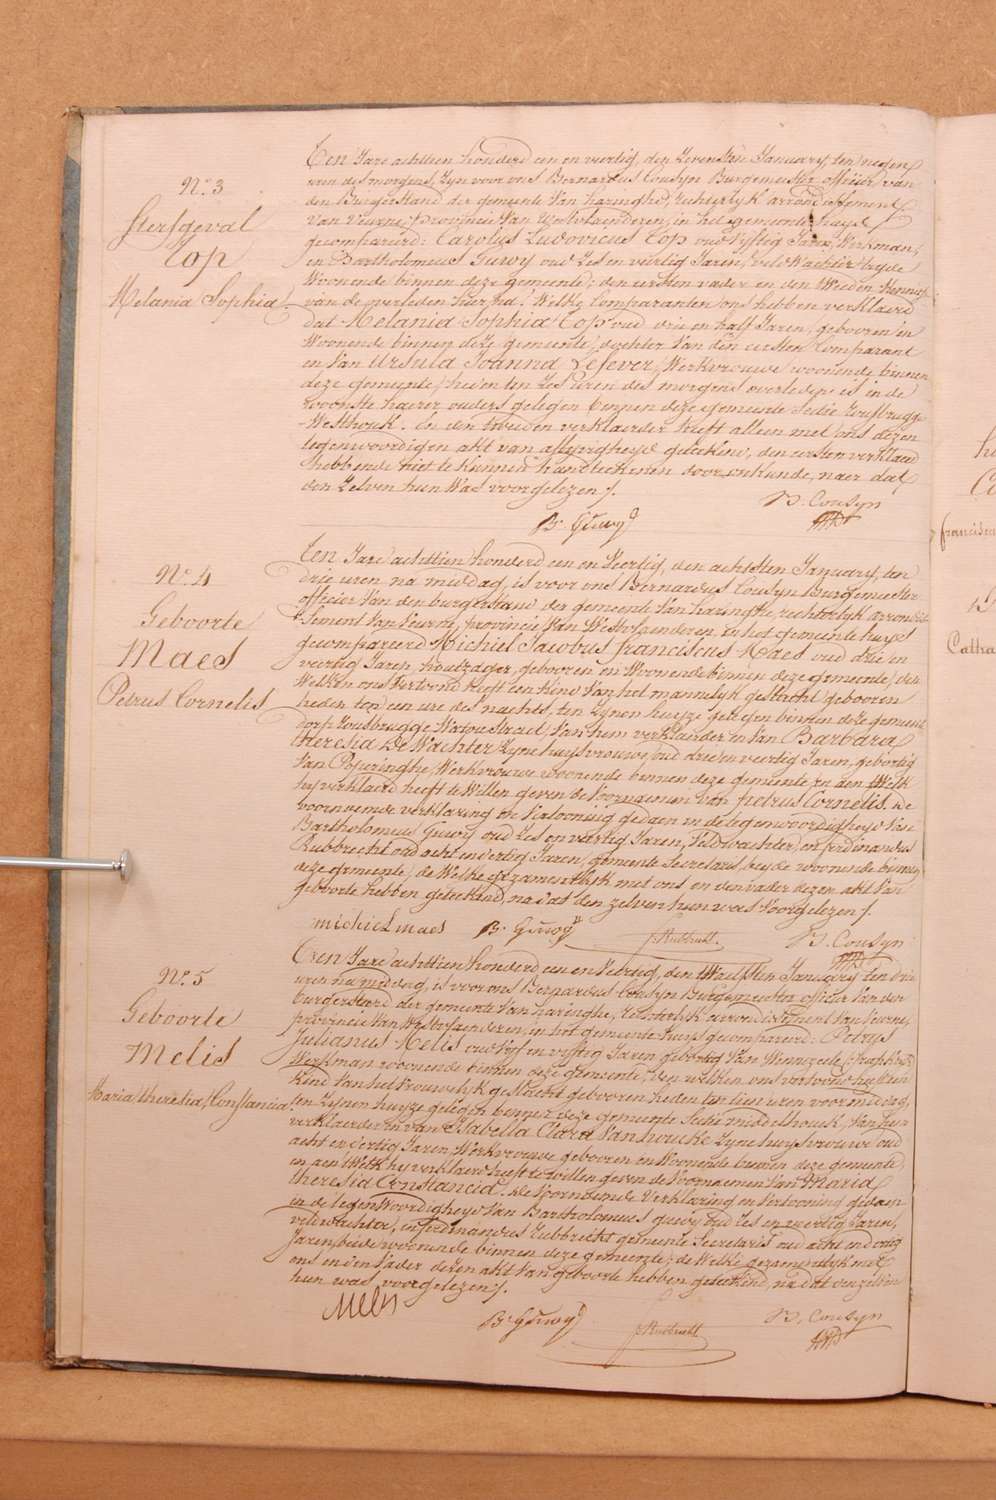 N.º 3
Sterfgeval
Cop
Melania Sophia
Ten Jare achttien honderd een en veertig, den zevensten January, ten negen
uren des morgens, Zyn voor ons Bernardus Cousyn Burgemeester officier van
den Burgerstand der gemeente Van haringhe, rechterlyk arrondissement
Van Veurne, provincie Van Westvlaenderen, in het gemeente huyse
gecompareerd: Carolus Ludovicus Cop oud vyftig Jaren, Werkman,
en Bartholomeus Guwy oud Zes en veertig Jaren, veld Wachter beyde
Woonende binnen deze gemeente; den eersten vader en den tweeden kennis
van de overleden hier na: Welke Comparanten ons hebben verklaerd
dat Melania Sophia Cop oud drie en half Jaren, gebooren in
Woonende binnen deze gemeente, dochter Van den eersten Comparant
en Van Ursula Joanna Lefever, Werkvrouwe woonende binnen
deze gemeente, heden ten Zes uren des morgens overleden is in de
woonste haerer ouders gelegen binnen deze gemeente Sectie Rousbrugge
Westhouk. en den tweeden verklaerder heeft alleen met ons dezen
tegenwoordigen akt van aflyvigheyd geteekend, den eersten verklaerd
hebbende niet te kunnen handteekenen door onkunde, naer dat
den Zelven hun Was voorgelezen /.
B. Guwy
B. Cousyn
N.º 4
Geboorte
Maes
Petrus Cornelis
Ten Jare achttien honderd een en Veertig, den achtsten January, ten
drie uren na middag, is voor ons Bernardus Cousyn Burgemeester
officier Van den burgerstand der gemeente Van haringhe, rechterlyk arrondis-
sement Van Veurne, provincie Van Westvlaenderen, in het gemeente huyse
gecompareerd Michiel Jacobus franciscus Maes oud drie en
veertig Jaren, houtzager, gebooren en Woonende binnen deze gemeente, den
Welken ons Vertoond heeft een kind Van het mannelyk geslacht gebooren
heden ten een ure des nachts, ten Zynen huyze gelegen binnen deze gemeente
dorp Rousbrugge Watoustraet, Van hem verklaerder en Van Barbara
Theresia De Wachter Zyne huysvrouwe, oud drie en veertig Jaren, geboortig
Van Poperinghe, Werkvrouwe woonende binnen deze gemeente, en aen Welk
hy verklaerd heeft te Willen geven de Voornaemen van petrus Cornelis. De
voornoemde verklaring en Vertooning gedaen in de tegenwoordigheyd Van
Bartholomeus Guwy oud Zes en veertig Jaren, Veldwachter, en ferdinandus
Rubbrecht oud acht en dertig Jaren, gemeente Secretaris, beyde woonende binnen
deze gemeente, de Welke gezamentlyk met ons en den vader dezen akt Van
geboorte hebben geteekend, na dat den zelven hun was Voorgelezen /.
michiel maes
B. Guwy
f. Rubbrecht
B. Cousyn
N.º 5
Geboorte
Melis
Maria, theresia, Constancia
Ten Jare achttien honderd een en Veertig, den Twaelfsten January ten drie
uren na middag, is voor ons Bernardus Cousyn Burgemeester officier Van den
burgerstand der gemeente Van haringhe, rechterlyk arrondissement Van Veurne,
provincie Van Westvlaenderen, in het gemeente huyse gecompareerd: Petrus
Julianus Melis oud Vyf en vyftig Jaren geboortig Van Winnezeele
Werkman woonende binnen deze gemeente, den welken ons vertoond heeft een
kind Van het Vrouwelyk geslacht gebooren heden ten tien uren voor middag,
ten Zynen huyze gelegen binnen deze gemeente Sectie middelhouck, Van hem
verklaerder en van Isabella Clara Vanhoucke Zyne huysvrouwe oud
acht en dertig Jaren, Werkvrouwe gebooren en Woonende binnen deze gemeente,
en aen Welk hy verklaerd heeft te willen geven de Voornaemen Van Maria
theresia Constancia. De Voornoemde Verklaring en Vertooning gedaen
in de tegenwoordigheyd Van Bartholomeus guwy oud Zes en veertig Jaren,
veldwachter, en ferdinandus Rubbrecht gemeente Secretaris oud acht en dertig
Jaren, beide woonende binnen deze gemeente, de Welke gezamentlyk met
ons en den Vader dezen akt Van geboorte hebben geteekend, na dat den zelven
hun was voorgelezen /.
Melis
B. Guwy
f. Rubbrecht
B. Cousyn
francisca
Catha